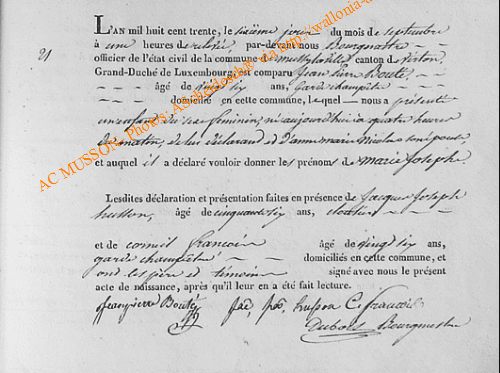 L'AN mil huit cent trente, le sixième jour du mois de septembre
à une heures de relevé, par-devant nous Bourgmestre
officier de l'état civil de la commune de canton de Virton,
Grand-Duché de Luxembourg, est comparu Jean Pierre Bouté,
âgé de vingt six ans, garde champêtre
domicilié en cette commune, lequel nous a présenté
un enfant du sexe feminin, né aujourd'hui a quatre heures
du matin, de lui déclarant et d'anne marie Nicolas son epouse,
et auquel il a déclaré vouloir donner les prénoms de marie Josephe.
21
Lesdites déclaration et présentation faites en présence de Jacques Joseph
husson, âgé de cinquante six ans,
et de corneil francois âgé de vingt six ans,
garde champêtre domiciliés en cette commune, et
ont les père et temoins signé avec nous le présent
acte de naissance, après qu'il leur en a été fait lecture.
Jeanpierre Bouté Jac, Jos, husson C. francois
Dubois Bourgmestre
AC MUSSON - Photo's: Aschedosch@ via http://wallonia-